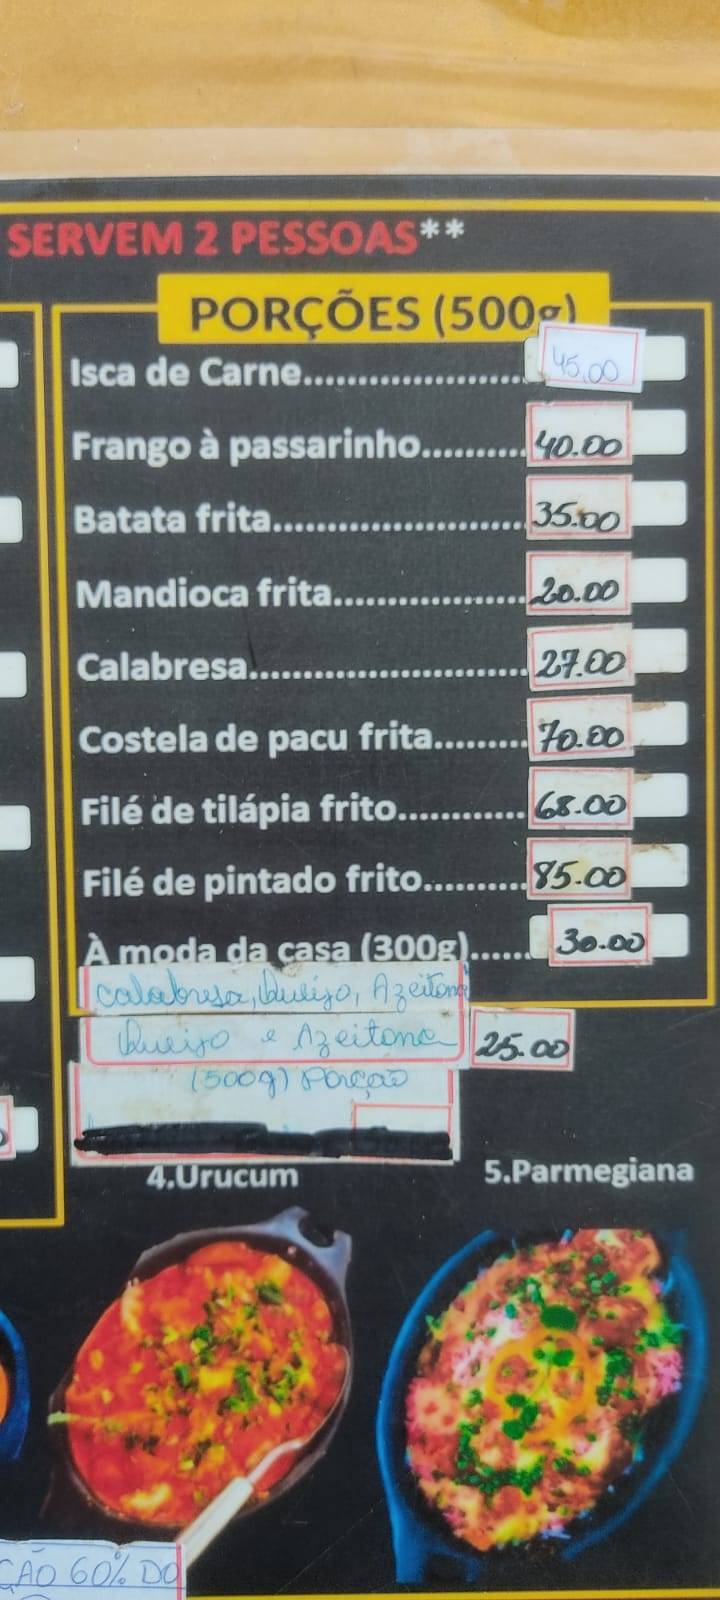 SERVEM 2 PESSOAS**
PORÇÕES (500g)
Isca de Carne....................... 45,00
Frango à passarinho.......... 40.00
Batata frita........................ 35.00
Mandioca frita.................. 20.00
Calabresa.......................... 27.00
Costela de pacu frita......... 70.00
Filé de tilápia frito............ 68.00
Filé de pintado frito.......... 85.00
À moda da casa (300g)...... 30.00
calabresa, Queijo, Azeitona
Queijo e Azeitona 25.00
(500g) Porção
4.Urucum 5.Parmegiana
ÇÃO 60% DO